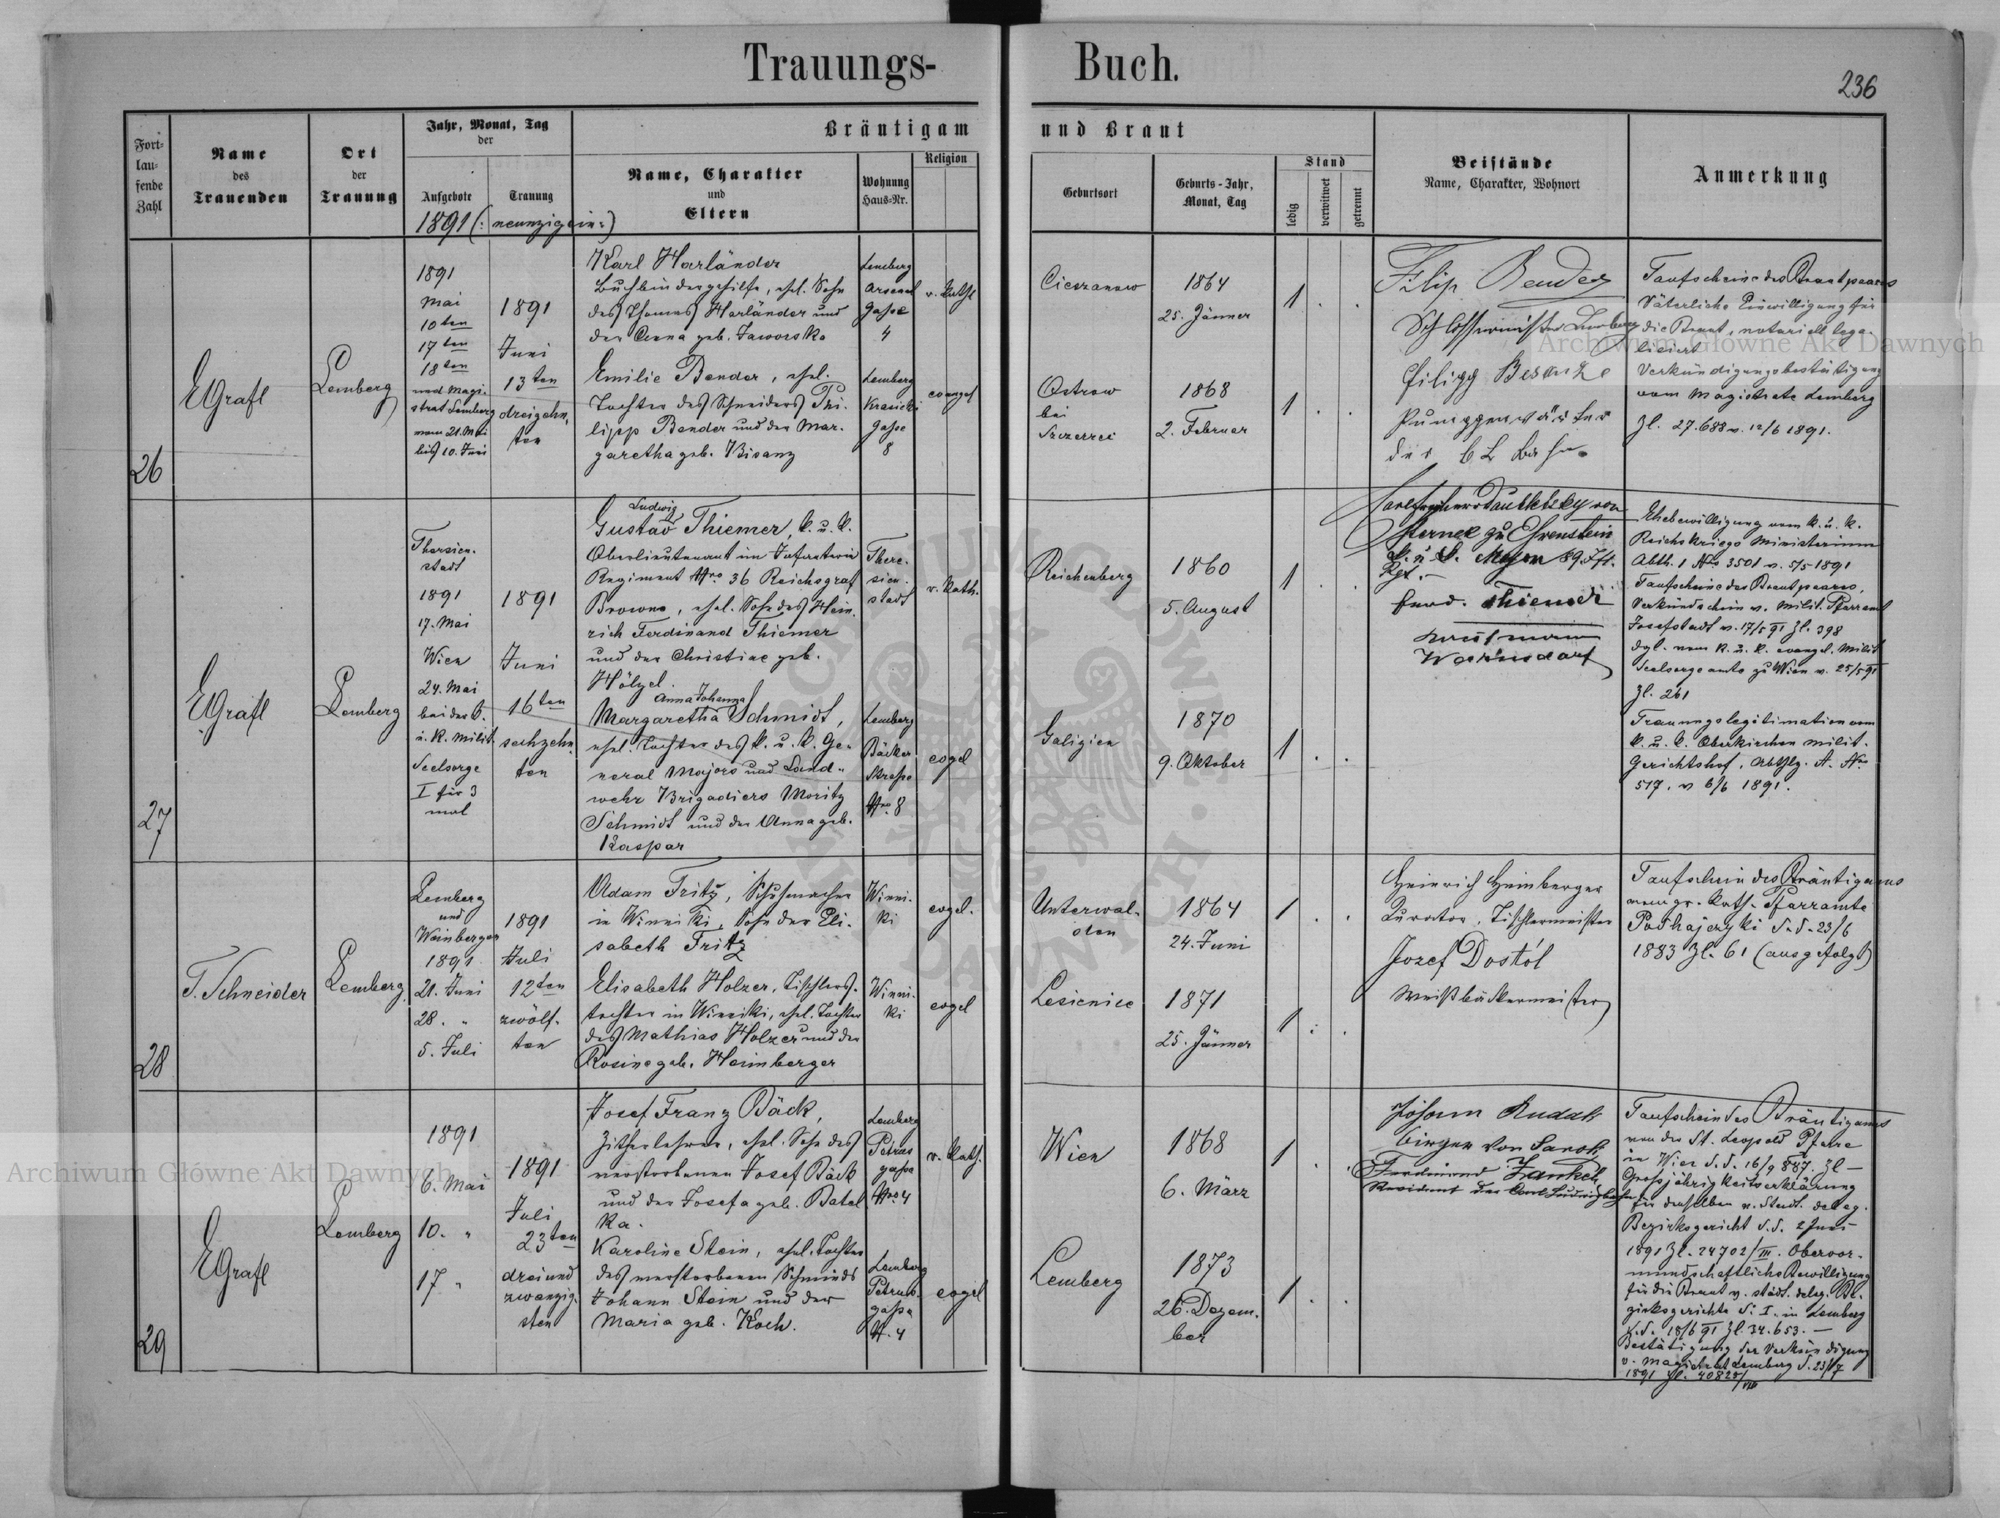 Trauungs-Buch.
236
Fort-
lau-
fende
Zahl
Name
des
Trauenden
Ort
der
Trauung
Jahr, Monat, Tag
der
Aufgebote
Trauung
Bräutigam und Braut
Name, Charakter
und
Eltern
Wohnung
Haus-Nr.
Religion
Geburtsort
Geburts-Jahr,
Monat, Tag
Stand
ledig
verwitwet
getrennt
Beistände
Name, Charakter, Wohnort
Anmerkung
1891 (: neunzigein :)
26
EGrafl
Lemberg
1891
Mai
10ten
17ten
18ten
und Magi-
strat Lemberg
vom 21. Mai
bis 10. Juni
1891
Juni
13ten
dreizehn-
ten
Karl Harländer
Buchbindergehilfe, ehel. Sohn
des Thomas Harländer und
der Anna geb. Jaworska
Lemberg
Arsenal
Gasse
4
r. kath
Cieszanow
1864
25. Jänner
1 . .
Emilie Bender, ehel.
Tochter des Schneiders Phi-
lipp Bender und der Mar-
garetha geb. Bisanz
Lemberg
Krasicki
Gasse
8
evangel
Ostrow
bei
1868
2. Februar
1 . .
Filip Bender
Schlossermeister Lemberg
Filipp
der
Taufscheine des Brautpaares
Väterliche Einwilligung für
die Braut, notariell lega-
lisiert
Verkündigungsbestätigung
vom Magistrate Lemberg
Zl. 27.688 v. 12/6 1891.
27
EGrafl
Lemberg
Theresien-
stadt
1891
17. Mai
Wien
24. Mai
bei der k.
u. k. Milit.
Seelsorge
I für 3
mal
1891
Juni
16ten
sechzehn-
ten
Ludwig
Gustav Thiemer, k. u. k.
Oberlieutenant im Infanterie
Regiment Nro 36 Reichsgraf
Browne, ehel. Sohn des Hein-
rich Ferdinand Thiemer
und der Christine geb.
Hölzel.
There-
sien-
stadt
r. kath.
Reichenberg
1860
5. August
1 . .
Anna Johanna
Margaretha Schmidt,
ehel. Tochter des k. u. k. Ge-
neral Majors und Land-
wehr Brigadiers Moritz
Schmidt und der Anna geb.
Kaspar
Lemberg
Bäcker
Strasse
Nro. 8
evgel
Galizien
1870
9. Oktober
1 . .
Carl Freiherr Daublebsky von
Sterneck zu Ehrenstein
k. u. k. Major 89. Ift.
Rgt. -
Ferd. Thiemer
Kaufmann
Warnsdorf
Ehebewilligung vom k. u. k.
Reichskriegs Ministerium
Abth. 1 Nro 3501 v. 5/5 1891
Taufscheine des Brautpaares,
Verkündschein v. Milit. Pfarramt
Josefstadt v. 17/5 91 Zl. 398
dgl. vom k. u. k. evangel. Milit
Seelsorgeamte zu Wien v. 25/5 91
Zl. 261
Trauungslegitimation vom
k. u. k. Oberkirchen Milit.
Gerichtshof, Abthlg. A. Nro
517. v 6/6 1891.
28
T. Schneider
Lemberg
Lemberg
und
Weinbergen
1891
21. Juni
28. "
5. Juli
1891
Juli
12ten
zwölf-
ten
Adam Fritz, Schuhmacher
in Winniki, Sohn der Eli-
sabeth Fritz
Winni-
ki
evgel.
Unterwal-
den
1864
24. Juni
1 . .
Elisabeth Holzer, Tischlers-
tochter in Winniki, ehel. Tochter
des Mathias Holzer und der
Rosine geb. Heimberger
Winni-
ki
evgel
Lesienice
1871
25. Jänner
1 . .
Heinrich Heinberger
Kurator, Tischlermeister
Jozef Dostól
Weißbäckermeister
Taufschein des Bräutigams
vom gr. kath. Pfarramte
Podhajczyki d. d. 23/6
1883 Zl. 61 (ausgefolgt)
29
EGrafl
Lemberg
1891
6. Mai
10. "
17 "
1891
Juli
23ten
dreiund
zwanzig-
sten
Josef Franz Bäck,
Zitherlehrer, ehel. Sohn des
verstorbenen Josef Bäck
und der Josefa geb. Batel
ka.
Lemberg
Petras
gasse
Nro 4
r. kath.
Wien
1868
6. März
1 . .
Karoline Stein, ehel. Tochter
des verstorbenen Schmieds
Johann Stein und der
Maria geb. Koch.
Lemberg
Petrus-
gasse
N. 4
evgel
Lemberg
1873
26. Dezem-
ber
1 . .
Johann Rudak
Birger von Sanok
Ferdinand Jankel,
Revident der Carl Ludwigbahn
Taufschein des Bräutigams
von der St. Leopold Pfarre
in Wien d. d. 16/9 887. Zl —
Grossjährigkeitserklärung
für denselben v. Stadt. deleg.
Bezirksgericht d. d. 2 Juni
1891 Zl. 24702/III. Obervor-
mundschaftliche Bewilligung
für die Braut v. städt. deleg. Be-
zirksgerichte S. I. in Lemberg
d. d. 18/6 91 Zl. 34.653. —
Bestätigung der Verkündigung
v. Magistrat Lemberg d. 23/7
1891 Zl. 40825/VIII
Archiwum Główne Akt Dawnych
Archiwum Główne Akt Dawnych